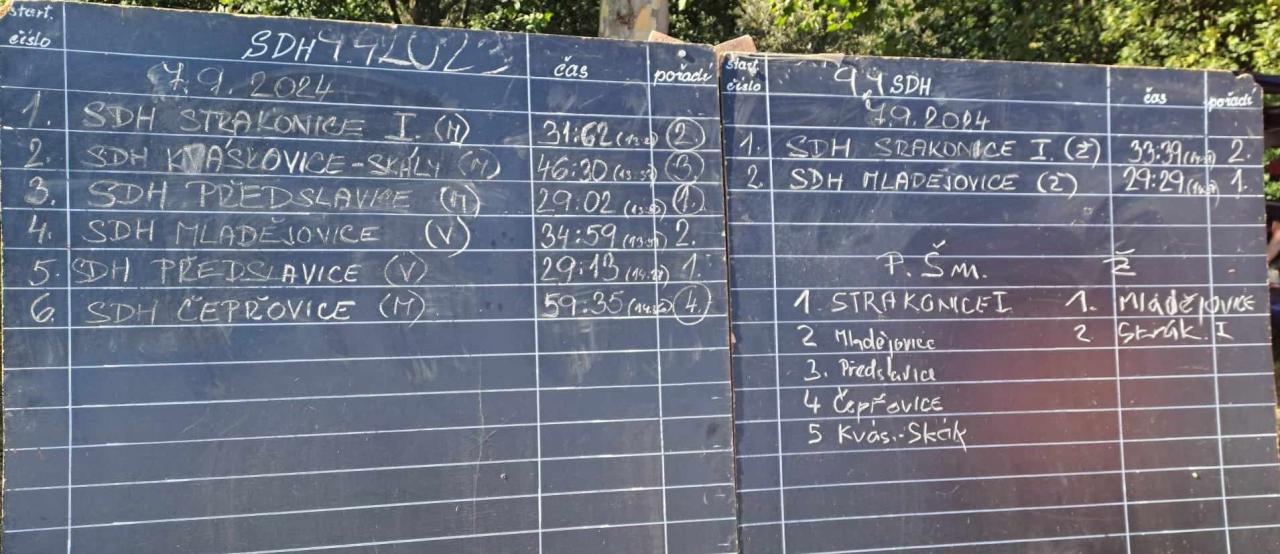 start. číslo SDH čas pořadí
7.9.2024
1. SDH STRAKONICE I. (M) 31:62 2.
2. SDH KVÁSLOVICE-SKÁLY (M) 46:30 3.
3. SDH PŘEDSLAVICE (M) 29:02 1.
4. SDH MLADĚJOVICE (V) 34:59 2.
5. SDH PŘEDSLAVICE (V) 29:13 1.
6. SDH ČEPŘOVICE (M) 59:35 4.
start. číslo SDH čas pořadí
7.9.2024
1. SDH SRAKONICE I. (Ž) 33:39 2.
2. SDH MLADĚJOVICE (Ž) 29:29 1.
P. ŠM. Ž
1. STRAKONICE I 1. Mladějovice
2 Mladějovice 2. Strak. I
3. Předslavice
4 Čepřovice
5 Kvás.-Skál